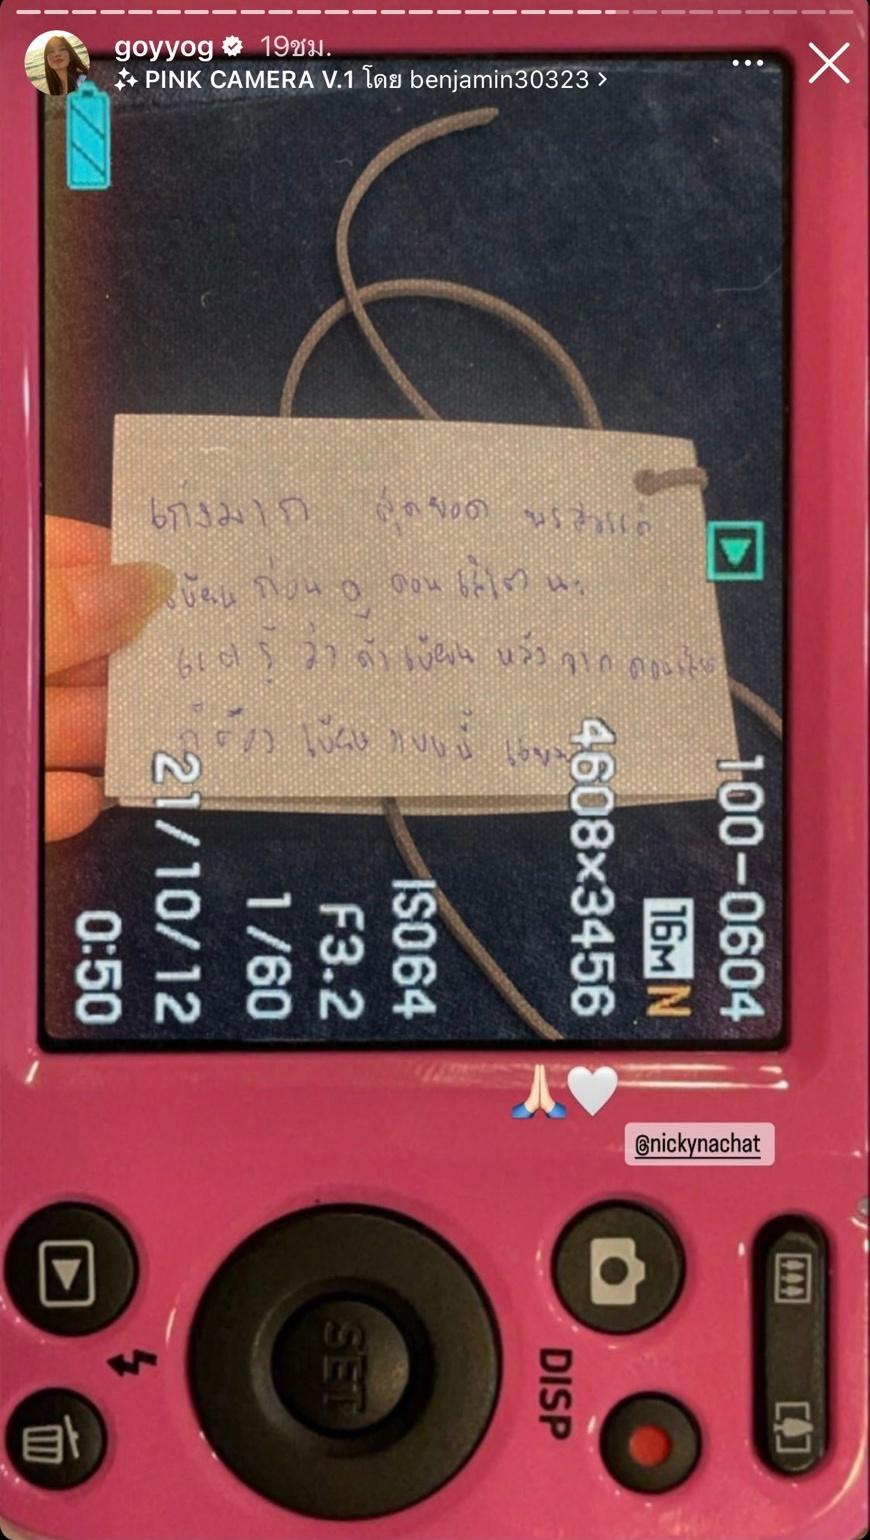 goyyog 19ชม.
PINK CAMERA V.1 โดย benjamin30323 >
เก่งมาก สุดยอด พรสวรรค์
เขียน ก่อน ดู ตอน นะ
แต่ รู้ ว่า ถ้า เขียน หลัง จาก
ก็ ต้อง เขียน แบบนี้
100-0604
16M N
4608x3456
ISO64
F3.2
1/60
21/10/12
0:50
@nickynachat
DISP
SET